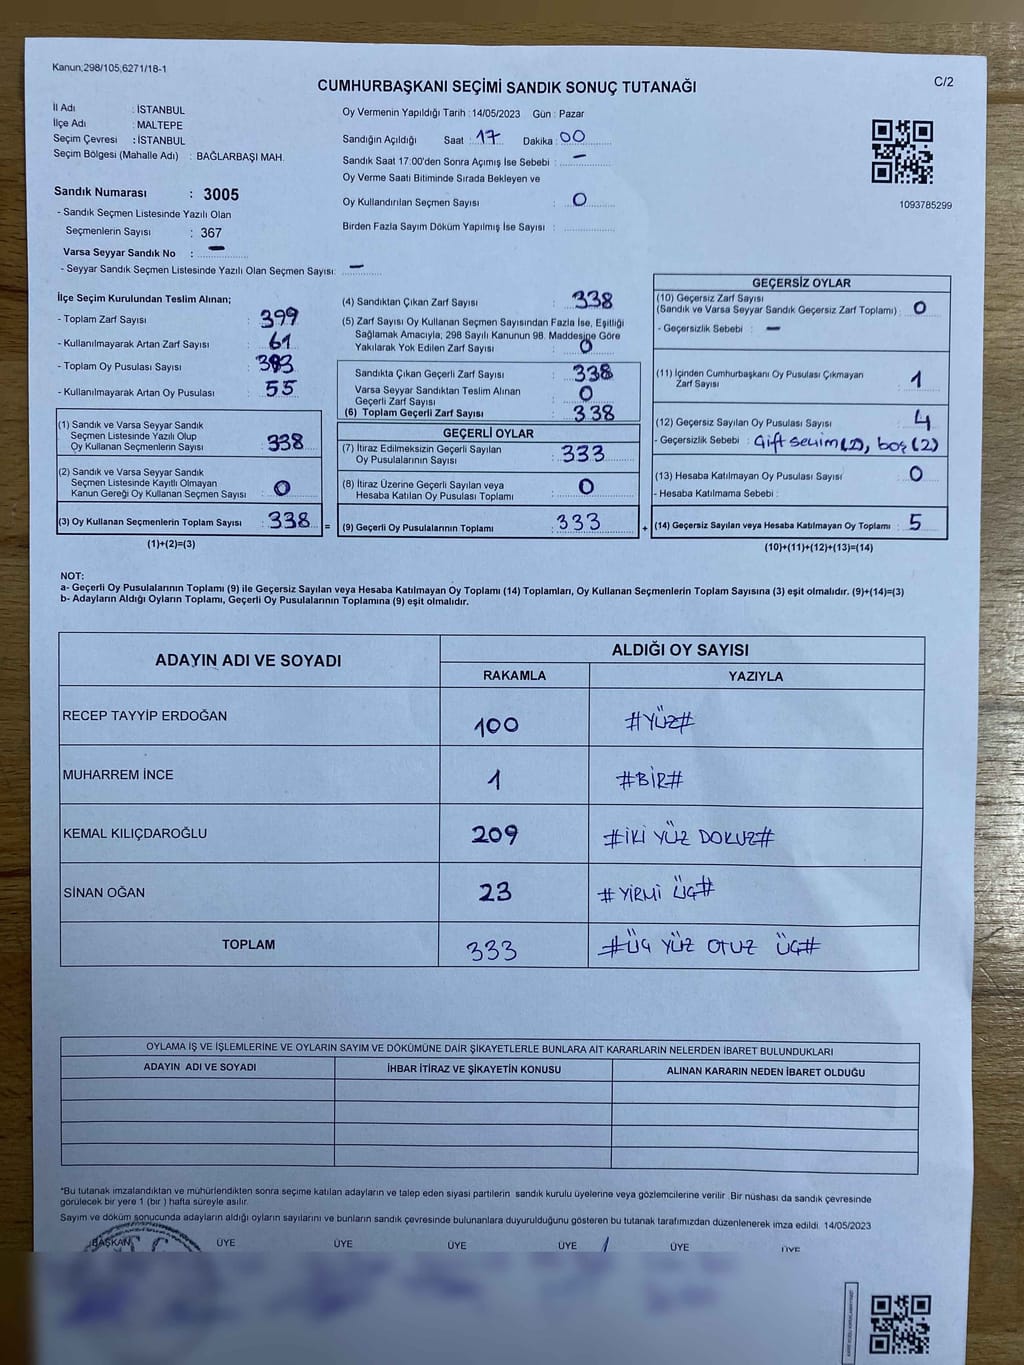 Kanun;298/105,6271/18-1
C/2
CUMHURBAŞKANI SEÇİMİ SANDIK SONUÇ TUTANAĞI
İl Adı : İSTANBUL
İlçe Adı : MALTEPE
Seçim Çevresi : İSTANBUL
Seçim Bölgesi (Mahalle Adı) : BAĞLARBAŞI MAH.
Sandık Numarası : 3005
- Sandık Seçmen Listesinde Yazılı Olan
Seçmenlerin Sayısı : 367
Varsa Seyyar Sandık No : -
- Seyyar Sandık Seçmen Listesinde Yazılı Olan Seçmen Sayısı: -
Oy Vermenin Yapıldığı Tarih : 14/05/2023 Gün : Pazar
Sandığın Açıldığı Saat : 17 Dakika : 00
Sandık Saat 17:00'den Sonra Açımış İse Sebebi : -
Oy Verme Saati Bitiminde Sırada Bekleyen ve
Oy Kullandırılan Seçmen Sayısı : 0
Birden Fazla Sayım Döküm Yapılmış İse Sayısı :
1093785299
İlçe Seçim Kurulundan Teslim Alınan;
- Toplam Zarf Sayısı : 399
- Kullanılmayarak Artan Zarf Sayısı : 61
- Toplam Oy Pusulası Sayısı : 393
- Kullanılmayarak Artan Oy Pusulası : 55
(1) Sandık ve Varsa Seyyar Sandık
Seçmen Listesinde Yazılı Olup
Oy Kullanan Seçmenlerin Sayısı : 338
(2) Sandık ve Varsa Seyyar Sandık
Seçmen Listesinde Kayıtlı Olmayan
Kanun Gereği Oy Kullanan Seçmen Sayısı : 0
(3) Oy Kullanan Seçmenlerin Toplam Sayısı : 338
(1)+(2)=(3)
=
(4) Sandıktan Çıkan Zarf Sayısı : 338
(5) Zarf Sayısı Oy Kullanan Seçmen Sayısından Fazla İse, Eşitliği
Sağlamak Amacıyla, 298 Sayılı Kanunun 98. Maddesine Göre
Yakılarak Yok Edilen Zarf Sayısı : 0
Sandıkta Çıkan Geçerli Zarf Sayısı : 338
Varsa Seyyar Sandıktan Teslim Alınan
Geçerli Zarf Sayısı : 0
(6) Toplam Geçerli Zarf Sayısı : 338
GEÇERLİ OYLAR
(7) İtiraz Edilmeksizin Geçerli Sayılan
Oy Pusulalarının Sayısı : 333
(8) İtiraz Üzerine Geçerli Sayılan veya
Hesaba Katılan Oy Pusulası Toplamı : 0
(9) Geçerli Oy Pusulalarının Toplamı : 333
+
GEÇERSİZ OYLAR
(10) Geçersiz Zarf Sayısı
(Sandık ve Varsa Seyyar Sandık Geçersiz Zarf Toplamı) : 0
- Geçersizlik Sebebi : -
(11) İçinden Cumhurbaşkanı Oy Pusulası Çıkmayan
Zarf Sayısı : 1
(12) Geçersiz Sayılan Oy Pusulası Sayısı : 4
- Geçersizlik Sebebi : Çift seçim (2), boş (2)
(13) Hesaba Katılmayan Oy Pusulası Sayısı : 0
- Hesaba Katılmama Sebebi :
(14) Geçersiz Sayılan veya Hesaba Katılmayan Oy Toplamı : 5
(10)+(11)+(12)+(13)=(14)
NOT:
a- Geçerli Oy Pusulalarının Toplamı (9) ile Geçersiz Sayılan veya Hesaba Katılmayan Oy Toplamı (14) Toplamları, Oy Kullanan Seçmenlerin Toplam Sayısına (3) eşit olmalıdır. (9)+(14)=(3)
b- Adayların Aldığı Oyların Toplamı, Geçerli Oy Pusulalarının Toplamına (9) eşit olmalıdır.
ADAYIN ADI VE SOYADI
ALDIĞI OY SAYISI
RAKAMLA YAZIYLA
RECEP TAYYİP ERDOĞAN 100 #YÜZ#
MUHARREM İNCE 1 #BİR#
KEMAL KILIÇDAROĞLU 209 #İKİ YÜZ DOKUZ#
SİNAN OĞAN 23 #YİRMİ ÜÇ#
TOPLAM 333 #ÜÇ YÜZ OTUZ ÜÇ#
OYLAMA İŞ VE İŞLEMLERİNE VE OYLARIN SAYIM VE DÖKÜMÜNE DAİR ŞİKAYETLERLE BUNLARA AİT KARARLARIN NELERDEN İBARET BULUNDUKLARI
ADAYIN ADI VE SOYADI İHBAR İTİRAZ VE ŞİKAYETİN KONUSU ALINAN KARARIN NEDEN İBARET OLDUĞU
*Bu tutanak imzalandıktan ve mühürlendikten sonra seçime katılan adayların ve talep eden siyasi partilerin sandık kurulu üyelerine veya gözlemcilerine verilir. Bir nüshası da sandık çevresinde
görülecek bir yere 1 (bir) hafta süreyle asılır.
Sayım ve döküm sonucunda adayların aldığı oyların sayılarını ve bunların sandık çevresinde bulunanlara duyurulduğunu gösteren bu tutanak tarafımızdan düzenlenerek imza edildi. 14/05/2023
BAŞKAN ÜYE ÜYE ÜYE ÜYE ÜYE ÜYE